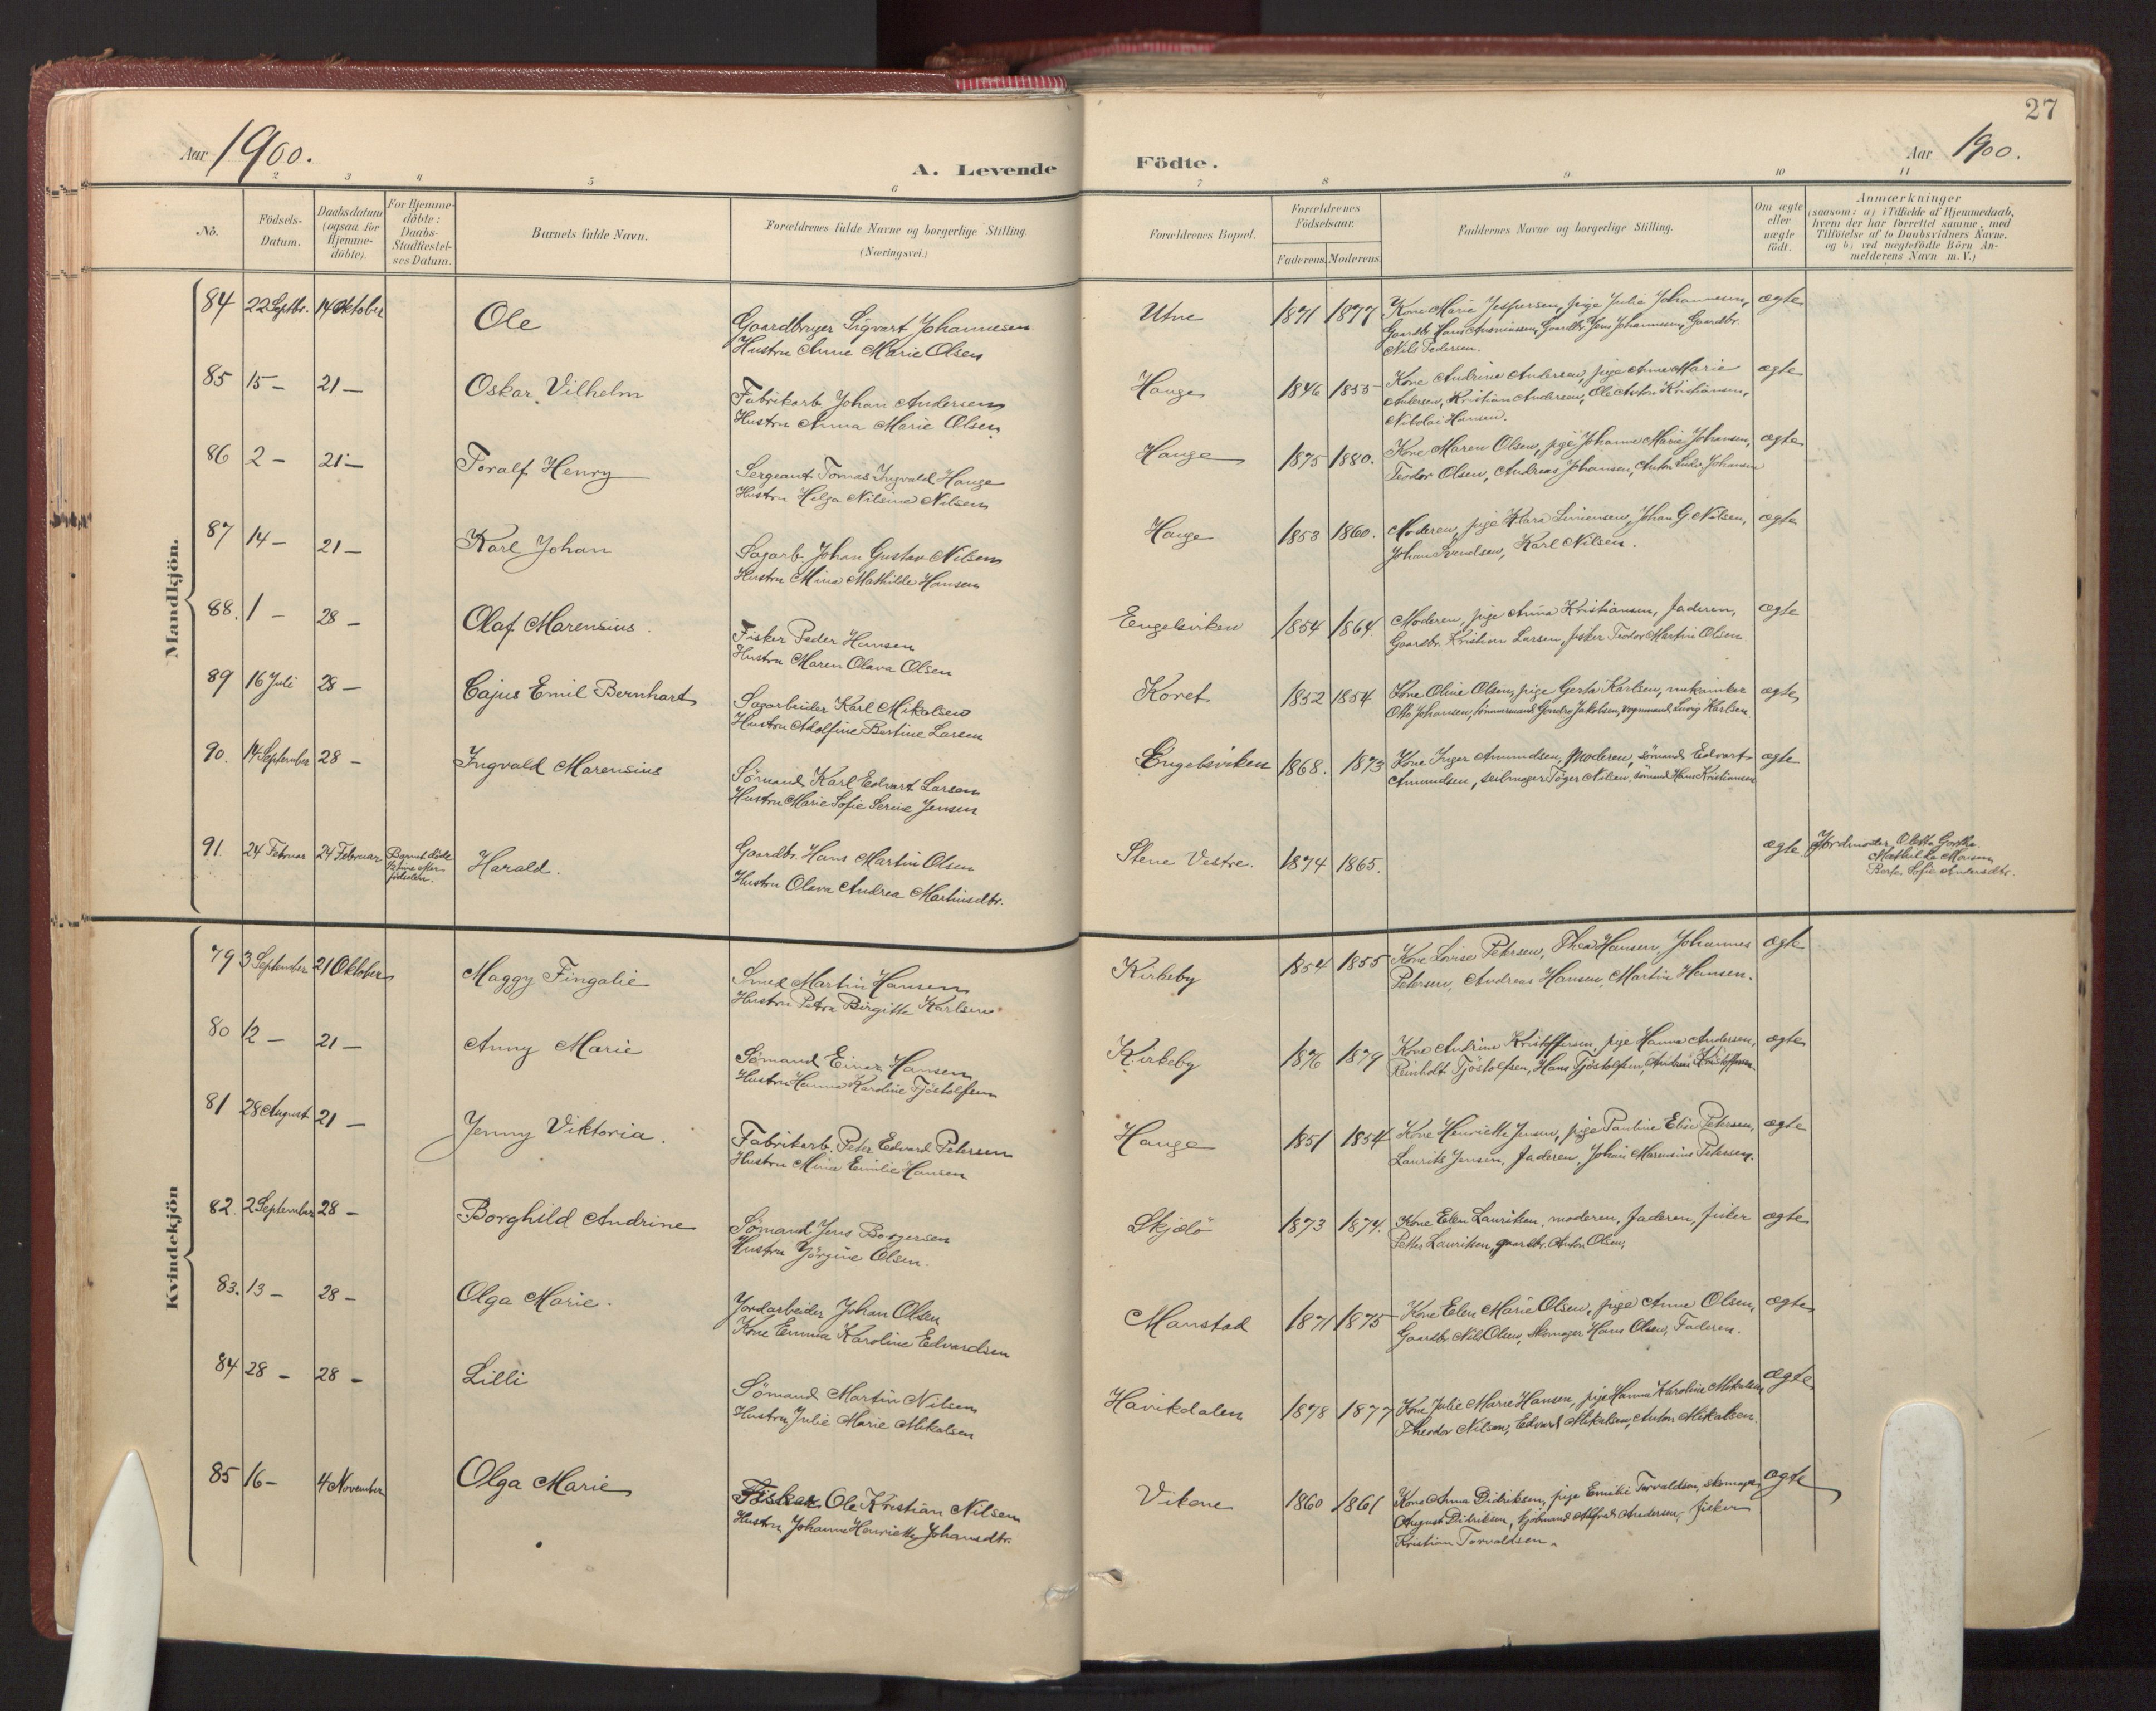 27
Aar 1900.
A. Levende Födte.
Aar 1900.
2 3 4 5 6 7 8 9 10 11
No.
Födsels-
Datum.
Daabsdatum
(ogsaa for
Hjemme-
döbte).
For Hjemme-
döbte:
Daabs-
Stadfæstel-
ses Datum.
Barnets fulde Navn.
Forældrenes fulde Navne og borgerlige Stilling.
(Næringsvei.)
Forældrenes Bopæl.
Forældrenes
Födselsaar.
Faderens. Moderens.
Faddernes Navne og borgerlige Stilling.
Om ægte
eller
uægte
födt.
Anmærkninger
(saasom: a) i Tilfælde af Hjemmedaab,
hvem der har forrettet samme, med
Tilföielse af to Daabsvidners Navne.
og b) ved uægtefödte Börn An-
melderens Navn m. V.)
Mandkjön.
84 22 Septbr. 14 Oktober Ole
Gaardbruger Sigvart Johannesen
Hustru Anne Marie Olsen
Utne 1871 1877
Kone Marie Jespersen, pige Julie Johannesen,
Gaardbr. Hans Asmiassen, Gaardbr. Jens Johannesen, Gaardbr.
Nils Pedersen.
ægte
85 15 – 21 – Oskar Vilhelm
Fabrikarb. Johan Andersen
Hustru Anna Marie Olsen
Hauge 1846 1855
Kone Andrine Andersen, pige Anne Marie
Andersen, Kristian Andersen, Ole Anton Kristiansen,
Nikolai Hansen.
ægte
86 2 – 21 – Toralf Henry
Sergeant Tomas Ingvald Hauge
Hustru Helga Nilsine Nilsen
Hauge 1875 1880.
Kone Maren Olsen, pige Johanne Marie Johansen,
Teodor Olsen, Andreas Johansen, Anton Ludv. Johansen
ægte
87 14 – 21 – Karl Johan
Sagarb. Johan Gustav Nilsen
Hustru Mina Mathilde Hansen
Hauge 1853 1860.
Moderen, pige Klara Simensen, Johan G Nilsen,
Johan Svendsen, Karl Nilsen.
ægte
88. 1 – 28 – Olaf Marensius.
Fisker Peder Hansen
Hustru Maren Olava Olsen
Engelsviken 1854 1864.
Moderen, pige Anna Kristiansen, Faderen,
Gaardbr. Kristian Larsen, fisker Teodor Martin Olsen.
ægte
89 16 Juli 28 – Cajus Emil Bernhart
Sagarbeider Karl Mikalsen
Hustru Adolfine Bertine Larsen
Koret 1852 1854.
Kone Oline Olsen, pige Gerda Karlsen, mekaniker
Otto Johansen, tömmermand Gjendro Jakobsen, vognmand Ludvig Karlsen.
ægte
90. 14 September 28 – Ingvald Marensius
Sömand Karl Edvart Larsen
Hustru Marie Sofie Serine Jensen
Engelsviken 1868. 1873
Kone Inger Amundsen, Moderen, sömand Edvart
Amundsen, seilmager Töger Nilsen, sömand Hans Kristiansen
ægte
91. 24 Februar 24 Februar
Barnet döde
födselen.
Harald.
Gaardbr. Hans Martin Olsen
Hustru Olava Andrea Martinsdtr.
Stene Vestre. 1874 1865.
ægte
Jordmoder Oletta Gorthe.
Mathilde Monsen
Berte Sofie Andersdtr.
Kvindekjön
79 3 September 21 Oktober Maggy Fingalie
Smed Martin Hansen
Hustru Petra Birgitte Karlsen
Kirkeby 1854 1855
Kone Lovise Petersen, Thea Hansen, Johannes
Petersen, Andreas Hansen, Martin Hansen.
ægte
80 12 – 21 – Anny Marie
Sömand Einar Hansen
Hustru Hanna Karoline Tjöstolfsen
Kirkeby 1876 1879
Kone Andrine Kristoffersen, pige Hanna Andersen,
Reinholt Tjöstolfsen, Hans Tjöstolfsen, Andreas Kristoffersen.
ægte
81 28 August 21 – Jenny Viktoria.
Fabrikarb. Peter Edvard Petersen
Hustru Mina Emilie Hansen
Hauge 1851 1854
Kone Henriette Jensen, pige Pauline Elise Petersen,
Laurits Jensen, Faderen, Johan Marensius Petersen.
ægte
82. 2 September 28 – Borghild Andrine
Sömand Jens Borgersen
Hustru Jörgine Olsen.
Skjælö 1873 1874.
Kone Elen Lauritsen, moderen, Faderen, fisker
Petter Lauritsen, gaardbr. Anton Olsen,
ægte
83. 13 – 28 – Olga Marie.
Jordarbeider Johan Olsen
Kone Emma Karoline Edvardsen
Manstad 1871 1875
Kone Elen Marie Olsen, pige Anne Olsen,
Gaardbr. Nils Olsen, Skomager Hans Olsen, Faderen.
ægte
84 28 – 28 – Lilli
Sömand Martin Nilsen
Hustru Julie Marie Mikalsen
Havikdalen 1878 1877
Kone Julie Marie Hansen, pige Hanna Karoline Mikalsen,
Theodor Nilsen, Edvard Mikalsen, Anton Mikalsen.
ægte
85 16 – 4 November Olga Marie
Fisker Ole Kristian Nilsen
Hustru Johanne Henriette Johansdtr.
Vikene 1860 1861
Kone Anna Didriksen, pige Emilie Torvaldsen, skomager
August Didriksen, kjöbmand Alfred Andersen, fisker
Kristian Torvaldsen.
ægte